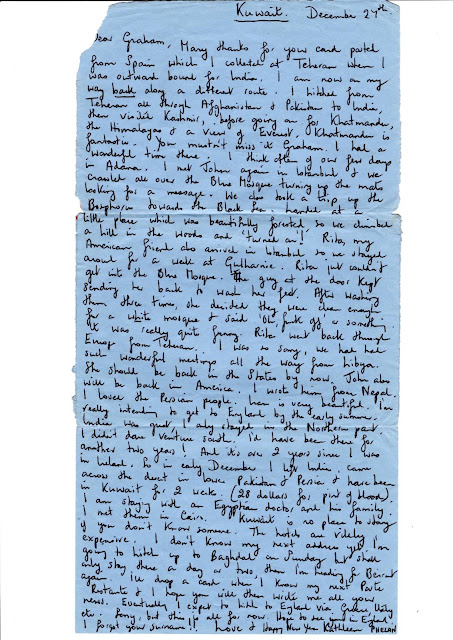 Kuwait. December 27th
Dear Graham, Many thanks for your card posted
from Spain which I collected at Teheran when I
was outward bound for India. I am now on my
way back along a different route. I hitched from
Teheran all through Afghanistan & Pakistan to India
then visited Kashmir, before going on for Khatmandu,
the Himalayas & a view of Everest. Khatmandu is
fantastic. You mustn't miss it Graham I had a
wonderful time there. I think often of our few days
in Adana. I met John again in Istanbul & we
crawled all over the Blue Mosque turning up the mats
looking for a message. We also took a trip up the
Bosphorus towards the Black Sea & landed at a
little place which was beautifully forested so we climbed
a hill in the woods and 'turned on'! Rita, my
American friend also arrived in Istanbul so we stayed
around for a week at Gulhanie. Rita just couldn't
get into the Blue Mosque. The guy at the door kept
sending her back to wash her feet. After washing
them three times, she decided they were clean enough
for a white mosque & said 'Oh, fuck off' or something.
It was really quite funny. Rita went back through
Europe from Teheran. I was so sorry, we had had
such wonderful meetings all the way from Libya.
She should be back in the States by now. John also
will be back in America. I wrote him from Nepal.
I loved the Persian people. Iran is very beautiful. I'm
really intending to get to England by the early summer.
India was great, I only stayed in the Northern part
I didn't dare venture south. I'd have been there for
another two years! And it's over 2 years since I was
in Ireland. So in early December I left India, came
across the desert in lower Pakistan & Persia & have been
in Kuwait for 2 weeks. (28 dollars for pint of blood).
I am staying with an Egyptian doctor and his family.
I met them in Cairo. Kuwait is no place to stay
if you don't know someone. The hotels are vilely
expensive. I don't know my next address yet. I'm
going to hitch up to Baghdad on Sunday but shall
only stay there a day or two then I'm heading for Beirut
again. I'll drop a card when I know my next Poste
Restante & I hope you will then write me all your
news. Eventually I expect to hitch to England via Greece Italy
etc. Sorry, but this is all for now. Hope to see you in England
I forgot your surname!! Love & Happy New Year Kathleen PHELAN